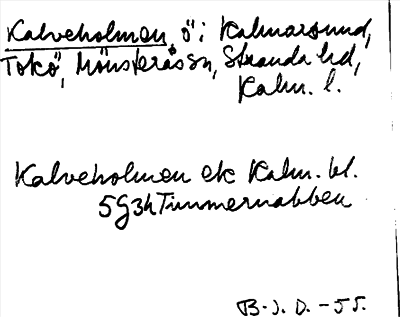 Kalveholmen, ö i Kalmarsund,
Tokö, Mönsterås sn, Stranda hd,
Kalm. l.
Kalveholmen ek Kalm. bl.
5G3h Timmernabben
B.J.D. - 55.